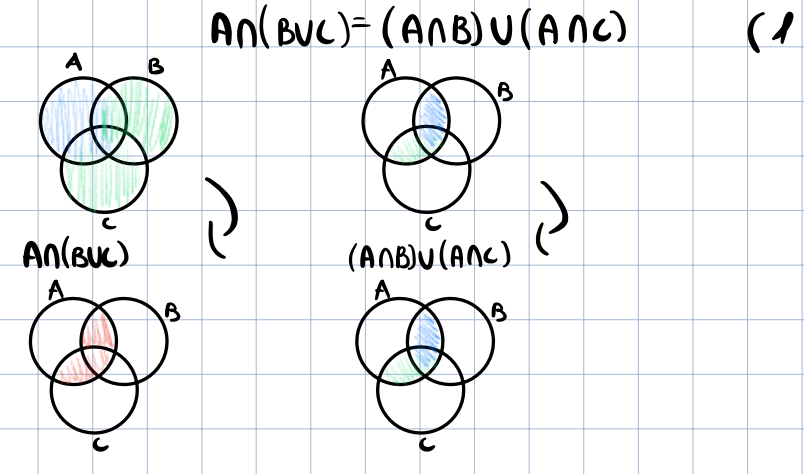 A∩(B∪C)=(A∩B)∪(A∩C) (1
A B
C
A B
C
A∩(B∪C)
A B
C
(A∩B)∪(A∩C)
A B
C